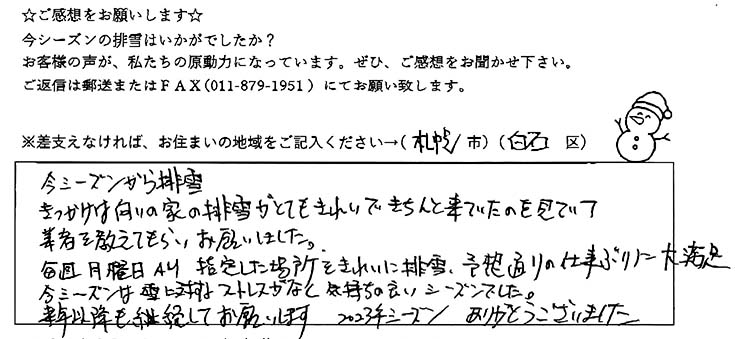 ☆ご感想をお願いします☆
今シーズンの排雪はいかがでしたか？
お客様の声が、私たちの原動力になっています。ぜひ、ご感想をお聞かせ下さい。
ご返信は郵送またはＦＡＸ（011-879-1951）にてお願い致します。
※差支えなければ、お住まいの地域をご記入ください→（札幌市）（白石区）
今シーズンから排雪
きっかけは向いの家の排雪がとてもきれいできちんと来ていたのを見ていて
業者を教えてもらいお願いしました。
毎週月曜日AM 指定した場所をきれいに排雪、予想通りの仕事ぶりに大満足
今シーズンは雪に対するストレスがなく気持ちの良いシーズンでした。
来年以降も継続してお願いします 2023年シーズン ありがとうございました